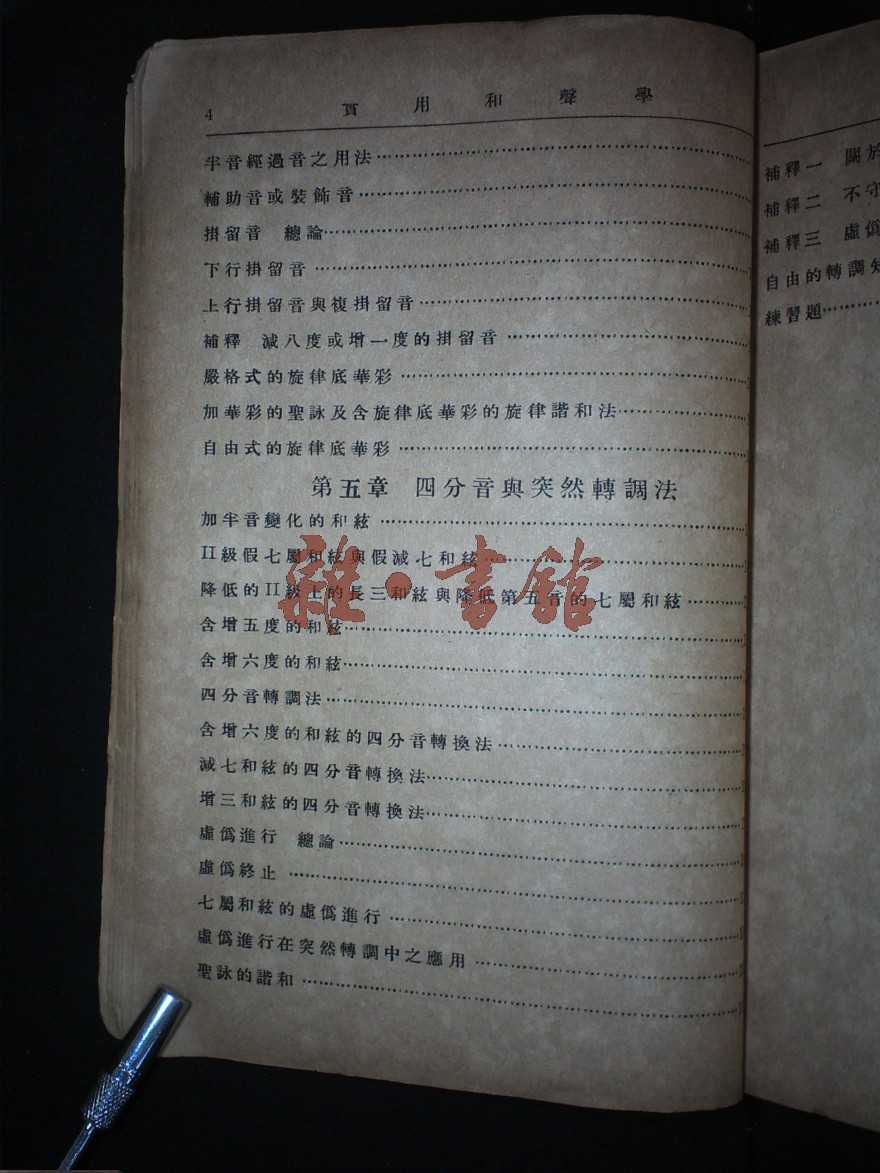 4 實用和聲學
半音經過音之用法
輔助音或裝飾音
掛留音 總論
下行掛留音
上行掛留音與複掛留音
補釋 減八度或增一度的掛留音
嚴格式的旋律底華彩
加華彩的聖詠及含旋律底華彩的旋律諧和法
自由式的旋律底華彩
第五章 四分音與突然轉調法
加半音變化的和絃
II級假七屬和絃與假減七和絃
降低的II級上的長三和絃與降低第五音的七屬和絃
含增五度的和絃
含增六度的和絃
四分音轉調法
含增六度的和絃的四分音轉換法
減七和絃的四分音轉換法
增三和絃的四分音轉換法
虛僞進行 總論
虛僞終止
七屬和絃的虛僞進行
虛僞進行在突然轉調中之應用
聖詠的諧和
補釋一 關於
補釋二 不守
補釋三 虛僞
自由的轉調
練習題
雜·書館